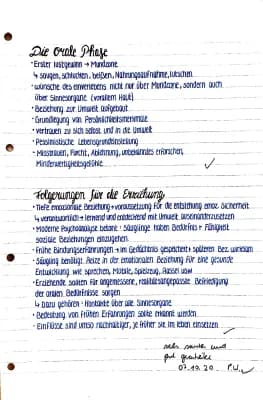 Die orale Phase
· Erster Lustgewinn → Mundzone
↳ saugen, schlucken, beißen, Nahrungsaufnahme, lutschen
· wünsche des einverleibens nicht nur über Mundzone, sondern auch
über Sinnesorgane (vorallem Haut)
· Beziehung zur Umwelt aufgebaut
· Grundlegung von Persönlichkeitsmerkmale
· vertrauen zu sich selbst und in die Umwelt
· Pessimistische Lebensgrundeinstellung
· Misstrauen, Furcht, Ablehnung, unbekanntes erforschen,
Minderwertigkeitsgefühl
Folgerungen für die Erziehung
· Tiefe emotionale Beziehung → voraussetzung für die entstehung emo. Sicherheit
↳ verantwortlich + lernend und entdeckend mit Umwelt auseinanderzusetzen
· Moderne Psychoanalyse betont: Säuglinge haben Bedürfnis + Fähigkeit
soziale Beziehungen einzugehen
· Frühe Bindungserfahrungen → im Gedächtnis gespeichert + späteren Bez. wirksam
· Säugling benötigt Reize in der emotionalen Beziehung für eine gesunde
Entwicklung, wie sprechen, Mobile, Spielzeug, Rassel usw
· Erziehende sollten für angemessene, realitätsangepasste Befriedigung
der oralen Bedürfnisse sorgen
↳ Dazu gehören: Kontakte über alle Sinnesorgane
· Bedeutung von frühen Erfahrungen sollte erkannt werden
· Einflüsse sind umso nachhaltiger, je früher sie im leben einsetzen
sehr und
gut
07.12.20